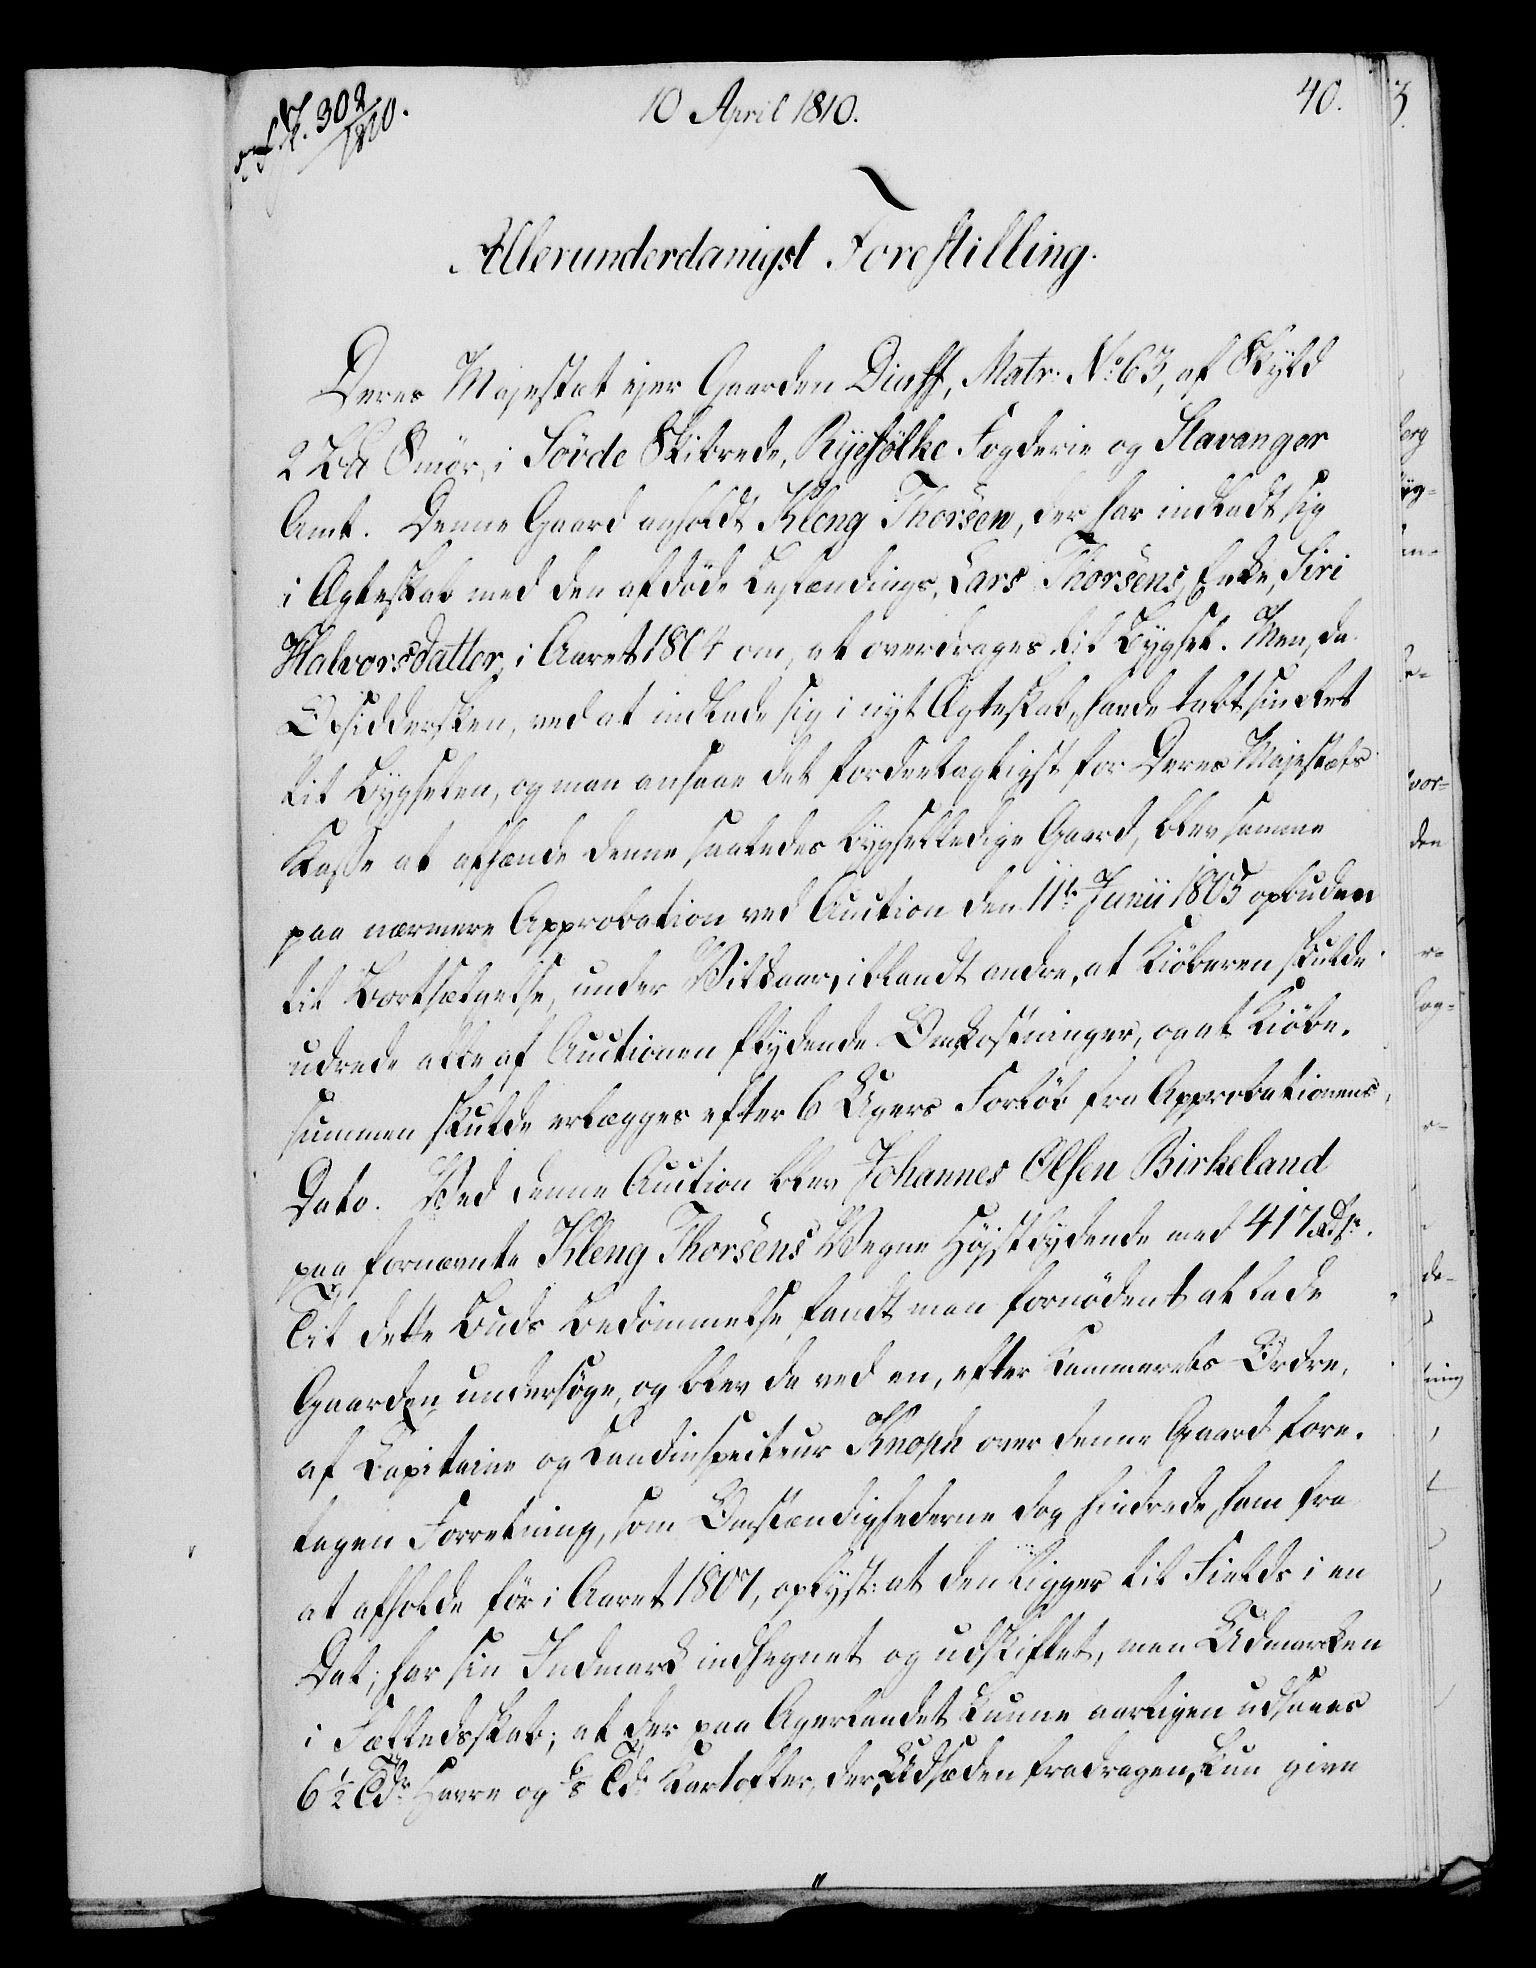 302/1810.
10 April 1810.
40.
Allerunderdanigst Forestilling.
Deres Majestæt ejer Gaarden Diuff, Matr: No 63, af Skyld
2 Smör, i Sövde Skibrede, Ryefölke Fogderie og Stavanger
Amt. Denne Gaard anholdt Kleng Thorsen, der har indladt sig
i Ægteskab med den afdöde Besændings, Lars Thorsens, Enke, Siri
Halvorsdatter, i Aaret 1804 om, at overdrages til Bygsel. Men, da
Opsiddersken, ved at indlade sig i nyt Ægteskab, havde tabt sin Ret
til Bygselen, og man ansaae det fordeelagtigst for Deres Majestæts
Kasse at afhænde denne saaledes bygselledige Gaard, blev samme
paa nærmere Approbation ved Auction den 11te Junii 1805 opbuden
til Bortsælgelse, under Vilkaar, iblandt andre, at Kiöberen skulde
udrede alle af Auctionen flydende Omkostninger, og at Kiöbe-
summen skulde erlægges efter 6 Ugers Forlöb fra Approbationens
Dato. Ved denne Auction blev Johannes Olsen Birkeland
paa fornævnte Kleng Thorsens Vegne Höjstbydende med 417 Rdr.
Til dette Buds Bedömmelse fandt man fornödent at lade
Gaarden undersöge, og blev da ved en, efter Kammerets Ordre,
af Capitaine og Landinspecteur Knoph over denne Gaard fore-
tagen Forretning, som Omstændighederne dog hindrede ham fra
at afholde för i Aaret 1807, oplyst: at den ligger til Fields i en
Dal; har sin Indmark indhegnet og udskiftet, men Udmarken
i Fælledsskab; at der paa Agerlandet kunne aarligen udsaaes
6 1/2 Tdr Havre og 5/8 Td. Kartofler, der, Udsæden fradragen, kun give